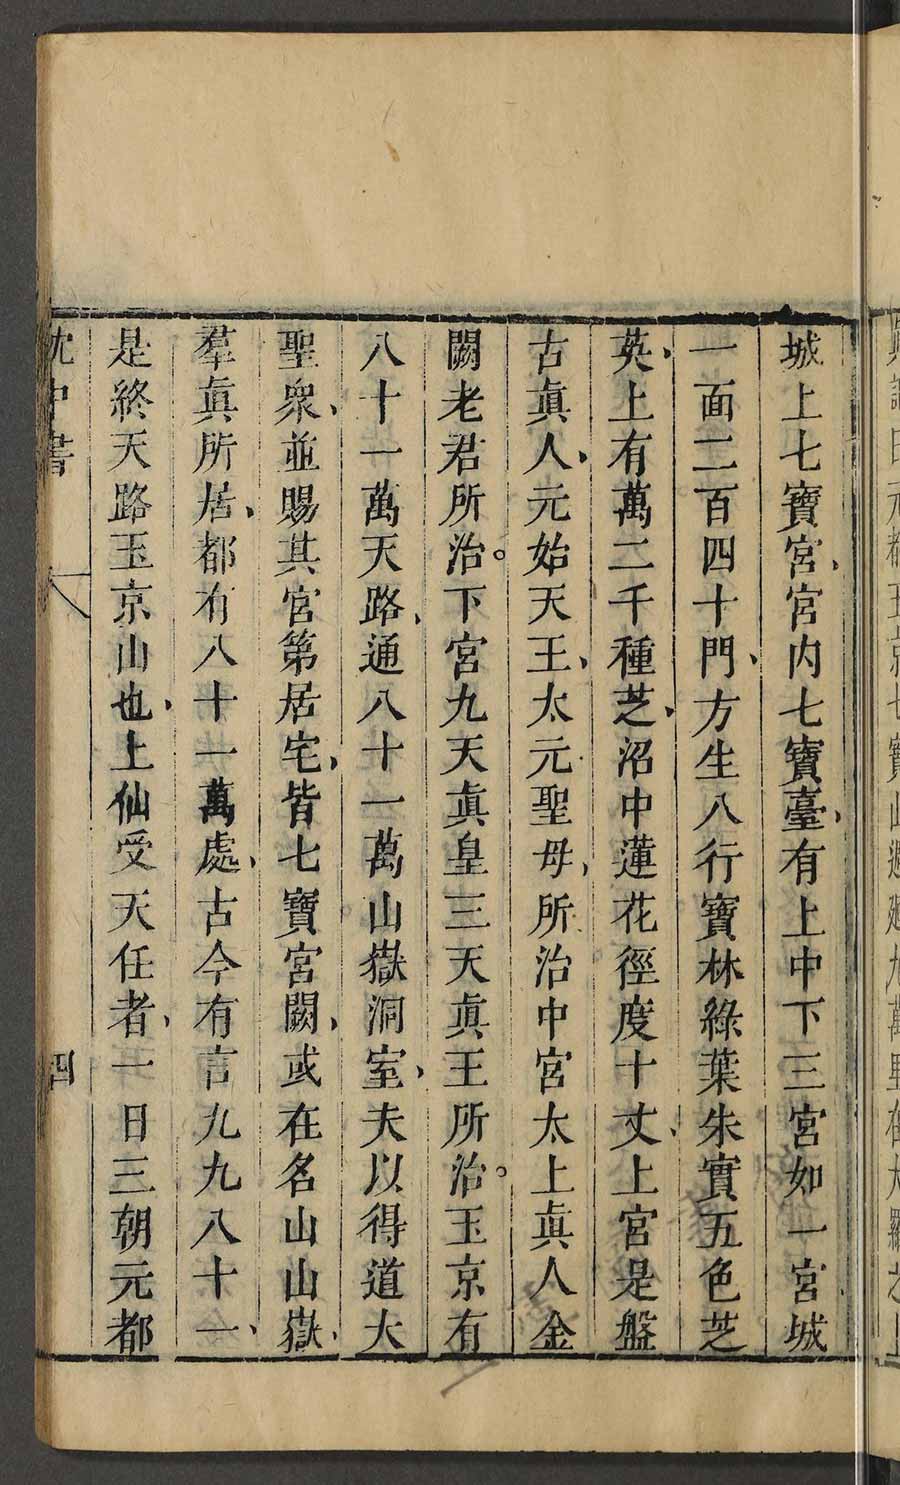 城上七寶宮、宮內七寶臺、有上中下三宮如一宮城
一面二百四十門、方生八行寶林綠葉朱實五色芝
英、上有萬二千種芝、沼中蓮花徑度十丈、上宮是盤
古眞人、元始天王、太元聖母、所治中宮太上眞人金
闕老君所治。下宮九天眞皇三天眞王所治。玉京有
八十一萬天路、通八十一萬山嶽洞室、夫以得道大
聖衆、並賜其宮第居宅、皆七寶宮闕、或在名山山嶽、
羣眞所居、都有八十一萬處、古今有言九九八十一、
是終天路玉京山也、上仙受天任者、一日三朝元都
枕中書
四